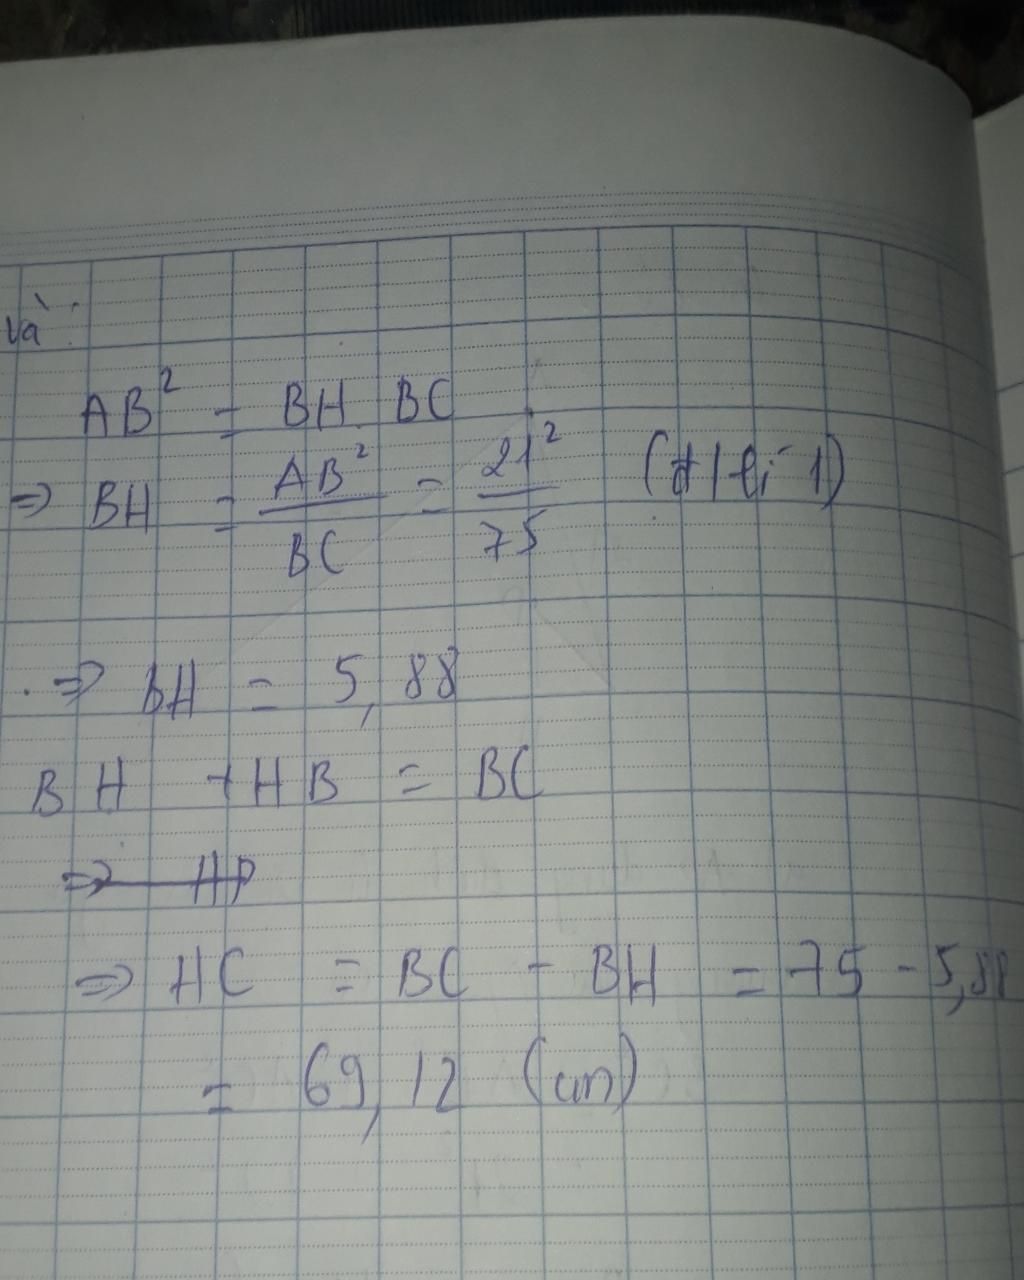 và :
AB² = BH . BC
=> BH = AB²/BC = 21²/75 (đ/lí 1)
=> BH = 5,88
BH + HB = BC
=> HC = BC - BH = 75 - 5,88
= 69,12 (cm)